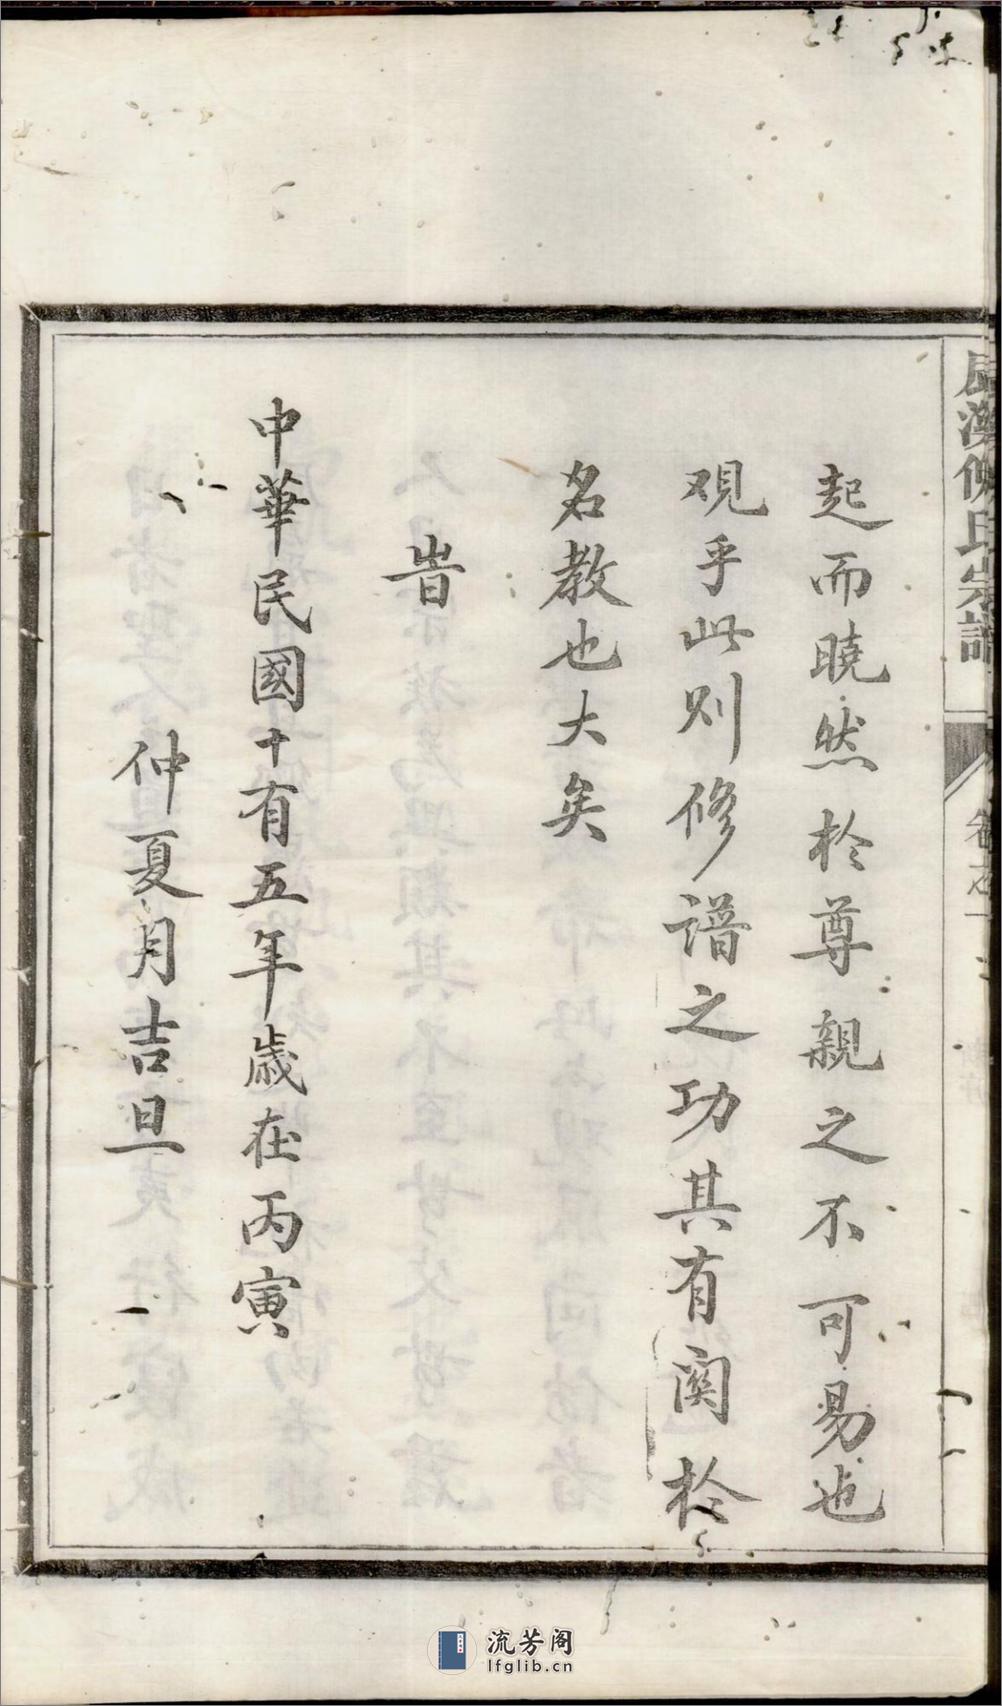 起而曉然於尊親之不可易也
观乎此則修譜之功其有関於
名教也大矣
旹
中華民國十有五年歲在丙寅
仲夏月吉旦
氏宗譜
卷之一
流芳阁
lfglib.cn